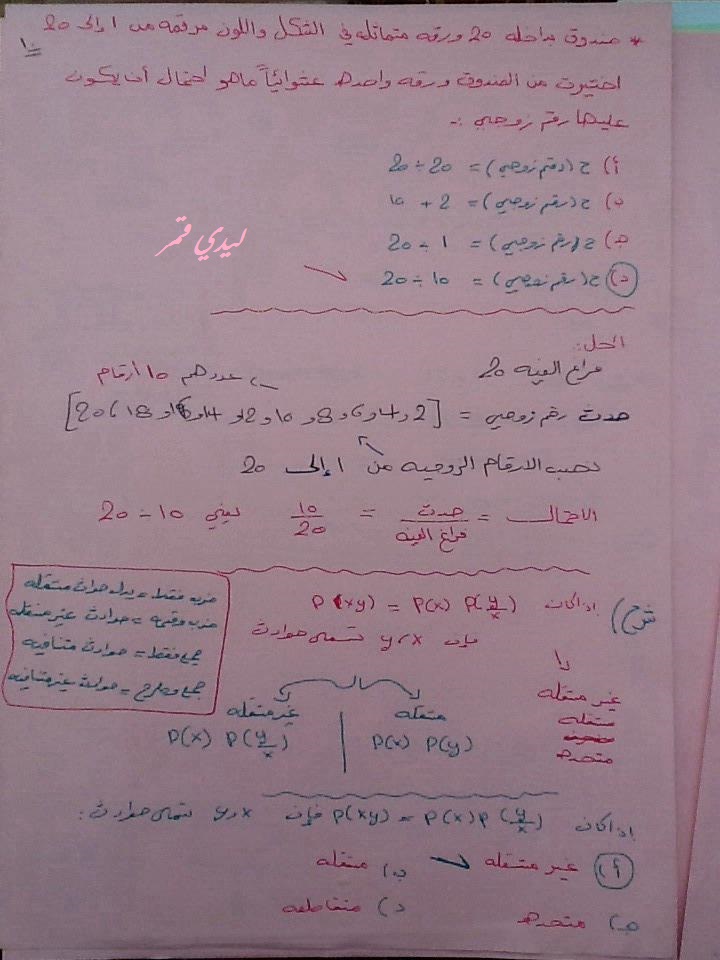 * صندوق بداخله 20 ورقه متماثله في الشكل واللون مرقمه من 1 إلى 20
اختيرت من الصندوق ورقه واحده عشوائياً ماهو احتمال أن يكون
عليها رقم زوجي :-
أ) ح (رقم زوجي) = 20 ÷ 20
ب) ح (رقم زوجي) = 2 + 10
ج) ح (رقم زوجي) = 1 ÷ 20
د) ح (رقم زوجي) = 10 ÷ 20
ليدي قمر
الحل:
فراغ العينه 20
عددهم 10 أرقام
حدث رقم زوجي = [2 و 4 و 6 و 8 و 10 و 12 و 14 و 16 و 18 و 20]
نحسب الارقام الزوجيه من 1 إلى 20
الاحتمال = حدث / فراغ العينه = 10/20 يعني 10 ÷ 20
شرح) إذا كان P(xy) = P(x) P(y/x)
فإن x و y تسمى حوادث
غير متقله
متقله
متحده
متقله
P(x) P(y)
غير متقله
P(x) P(y/x)
ضرب فقط = يدل حوادث متقله
ضرب وقسمه = حوادث غير متقله
جمع فقط = حوادث متنافيه
جمع وطرح = حوادث غير متنافيه
إذا كان P(xy) = P(x) P(y/x) فإن x و y تسمى حوادث :
أ) غير متقله
ب) متقله
ج) متحده
د) متقاطعه